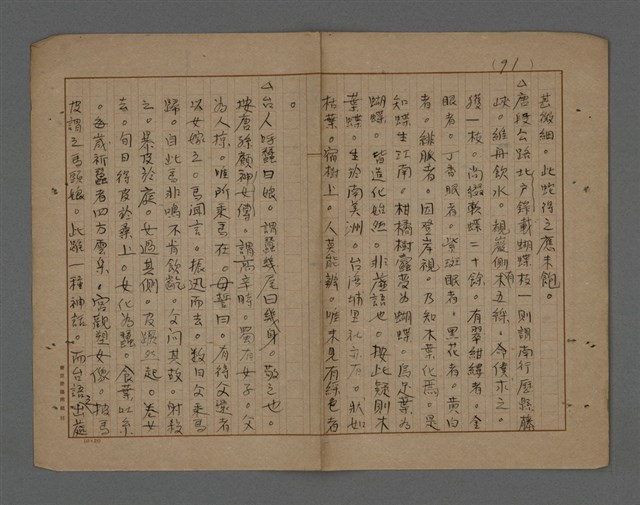 (91)
甚微細。此蛇得之應未飽。
△唐段公路北户錄載蝴蝶枝一則謂南行歷縣藤
峽。維舟飲水。覩巖側木五綵。令僕求之。
獲一枝。尚綴軟蝶二十餘。有翠紺縷者。金
眼者。丁香眼者。紫斑眼者。黑花者。黃白
者。緋脈者。因登岸視。乃知木葉化焉。是
知蝶生江南。柑橘樹蠹變為蝴蝶。烏足葉為
蝴蝶。皆造化始然。非虛語也。按此疑則木
葉蝶。生於南美洲。台灣埔里社亦有。狀如
枯葉。宿樹上。人莫能辨。唯未見有綵色者
。
△台人呼蠶曰娘。謂蠶幾尾曰幾身。敬之也。
按唐孫頠神女傳。謂高辛時。蜀有女子。父
為人掠。唯所乘馬在。母誓曰。有得父還者
以女嫁之。馬聞言。振迅而去。數日父乘馬
歸。自此馬非鳴不肯飲齕。父問其故。射殺
之。暴皮於庭。女過其側。皮蹶然起。卷女
去。旬日得皮於桑上。女化為蠶。食葉吐糸
。每歲祈蠶者四方雲集。宮觀塑女像。披馬
皮謂之馬頭娘。此雖一種神話。而台語之出處
10×20